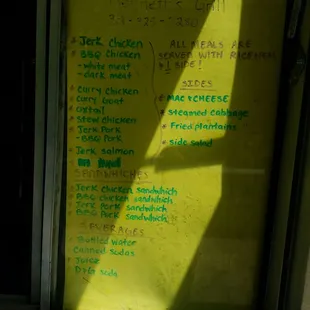 Grill
Jerk Chicken
BBQ Chicken
- white meat
- dark meat
Curry Chicken
Curry Goat
Oxtail
Stew Chicken
Jerk Pork
- BBQ Pork
Jerk Salmon
SANDWHICHES
Jerk chicken sandwhich
BBQ chicken sandwhich
Jerk Pork sandwhich
BBQ Pork sandwhich
BEVERAGES
Bottled water
Canned sodas
Juice
soda
ALL MEALS ARE
SERVED WITH
1 SIDE!
SIDES
MAC & CHEESE
Steamed Cabbage
Fried plantains
Side salad